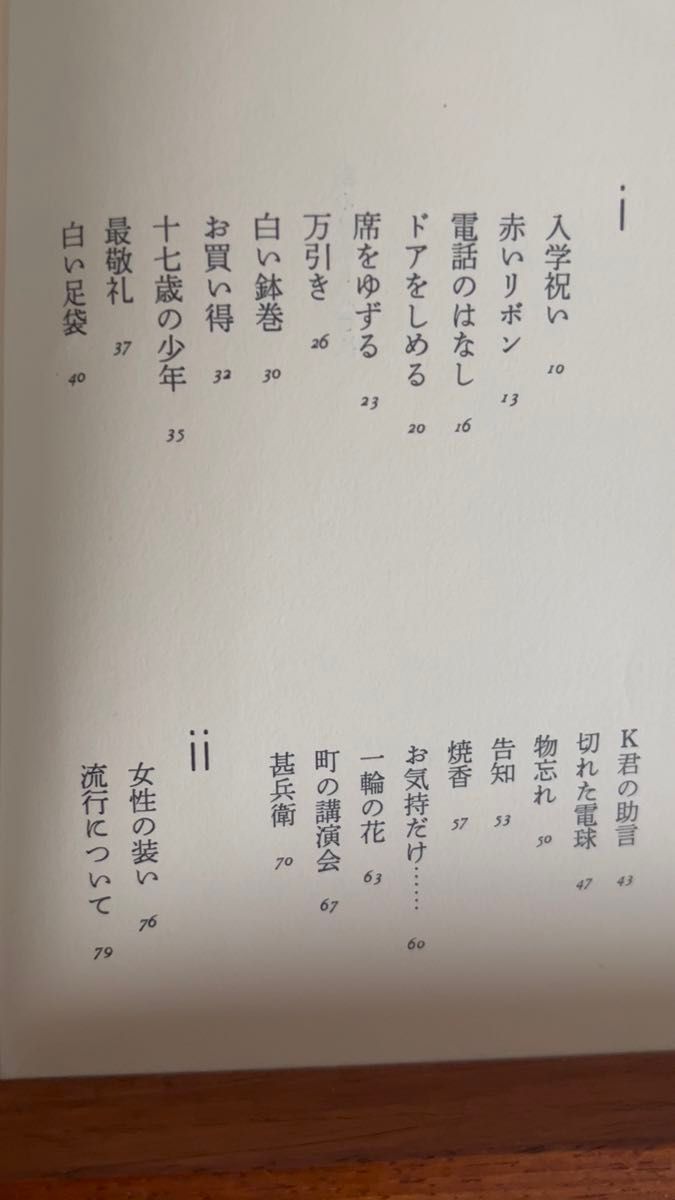 i
入学祝い 10
赤いリボン 13
電話のはなし 16
ドアをしめる 20
席をゆずる 23
万引き 26
白い鉢巻 30
お買い得 32
十七歳の少年 35
最敬礼 37
白い足袋 40
K君の助言 43
切れた電球 47
物忘れ 50
告知 53
焼香 57
お気持だけ…… 60
一輪の花 63
町の講演会 67
甚兵衛 70
ii
女性の装い 76
流行について 79